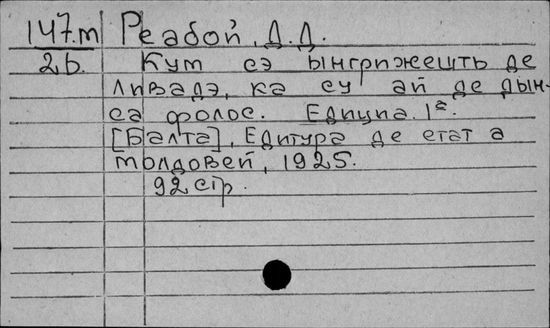 147.m Реабой, Д.Д.
2b. Кум сэ ынгрижешть де
ливадэ, ка еу ай де дын-
са фолос. Едиция 1ᵃ.
[Балта], Едитура де стат а
Молдовей, 1925.
92 стр.